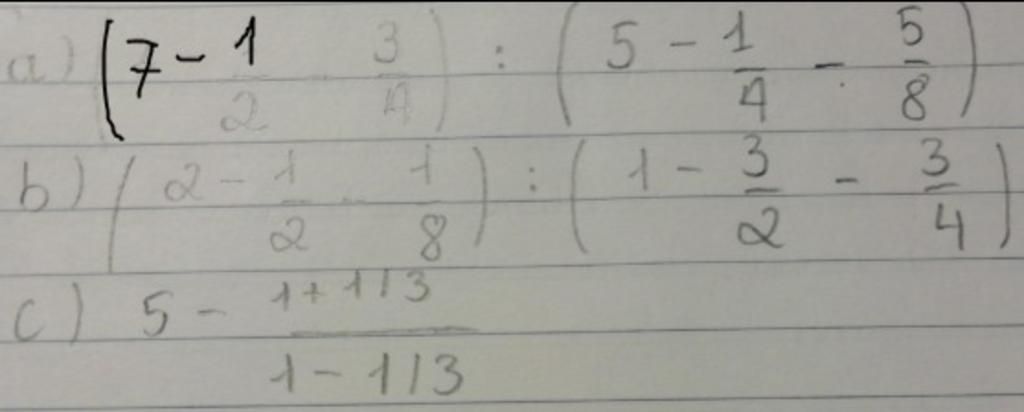 a) (7 - 1/2 - 3/4) : (5 - 1/4 - 5/8)
b) (2 - 1/2 - 1/8) : (1 - 3/2 - 3/4)
c) 5 - (1 + 1/3)/(1 - 1/3)